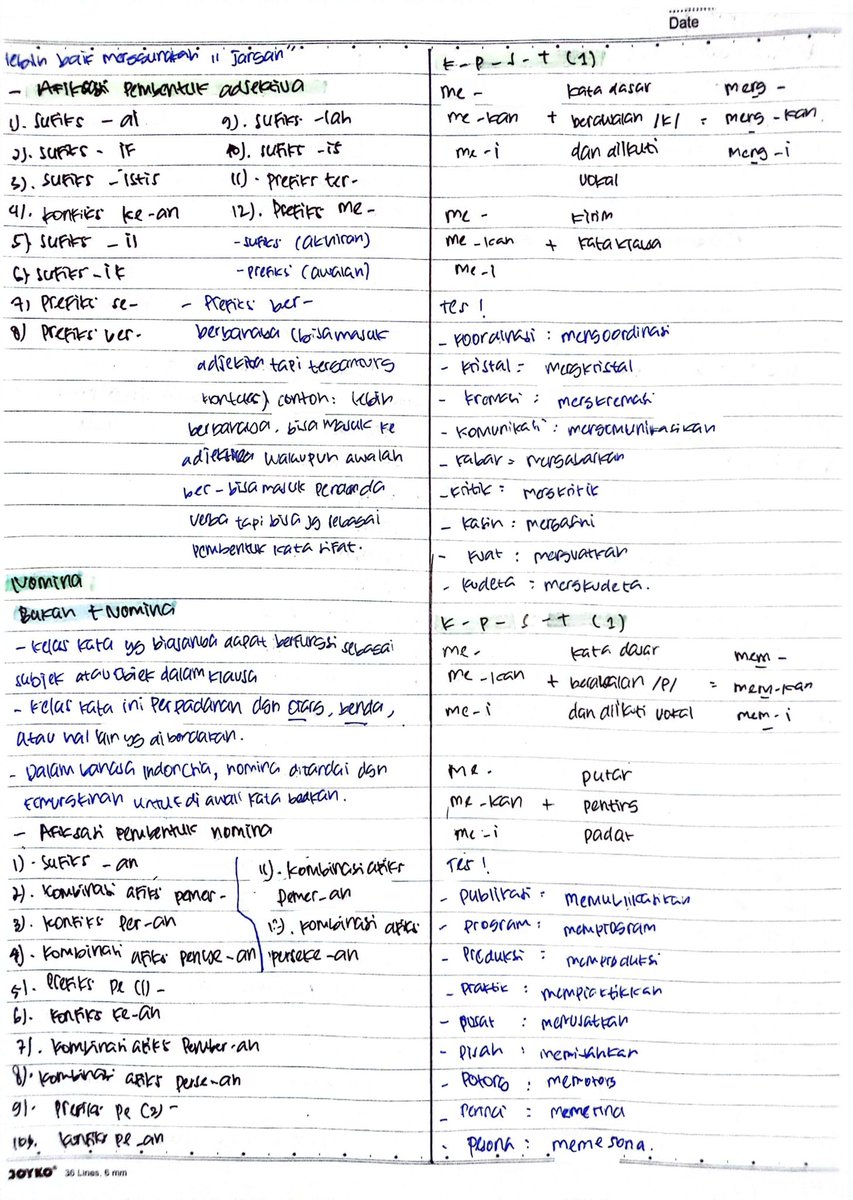 Date
lebih baik menggunakan "Jangan"
- Afiksasi Pembentuk adjektiva
1). Sufiks - al
2). Sufiks - if
3). Sufiks - istis
4). Konfiks ke-an
5) Sufiks - il
6) Sufiks - ik
7) Prefiks se-
8) Prefiks ber-
9). Sufiks - lah
10). Sufiks - is
11). Prefiks ter-
12). Prefiks me-
- sufiks (akhiran)
- prefiks (awalan)
- Prefiks ber-
berbahaya (bisa masuk
adjektiva tapi tergantung
konteks) contoh: lebih
berbahaya, bisa masuk ke
adjektiva walaupun awalan
ber- bisa masuk penanda
verba tapi bisa jg sebagai
pembentuk kata sifat.
Nomina
Bukan + Nomina
- kelas kata yg biasanya dapat berfungsi sebagai
subjek atau objek dalam klausa
- kelas kata ini perpadanan dgn orang, benda,
atau hal lain yg dibendakan.
- Dalam bahasa Indonesia, nomina ditandai dgn
kemungkinan untuk di awali kata bukan.
- Afiksasi pembentuk nomina
1). Sufiks - an
2). Kombinasi afiks pemer-
3). Konfiks Per-an
4). Kombinasi afiks penye-an
5). Prefiks Pe (1) -
6). Konfiks Ke-an
7). Kombinasi afiks Pember-an
8). Kombinasi afiks Perse-an
9). Prefiks Pe (2) -
10). Konfiks pe-an
11). Kombinasi afiks
pemer-an
12). Kombinasi afiks
perseke-an
K-P-S-T (1)
me - kata dasar meng -
me-kan + berawalan /k/ = meng-kan
me-i dan diikuti meng-i
vokal
me - kirim
me-kan + kata klausa
me-i
Tes!
- koordinasi : mengoordinasi
- kristal : mengkristal
- kremasi : mengkremasi
- komunikasi : mengomunikasikan
- kabar = mengabarkan
- kritik : mengkritik
- kasih : mengasihi
- kuat : menguatkan
- kudeta : mengkudeta.
K-P-S-T (1)
me- kata dasar mem -
me-kan + berawalan /p/ = mem-kan
me-i dan diikuti vokal mem-i
me- putar
me-kan + penting
me-i padar
Tes!
- publikasi : memublikasikan
- program : memprogram
- Produksi : memproduksi
- praktik : mempraktikkan
- pusat : memusatkan
- pisah : memisahkan
- Potong : memotong
- pesona : memesona.
JOYKO 36 Lines, 6 mm